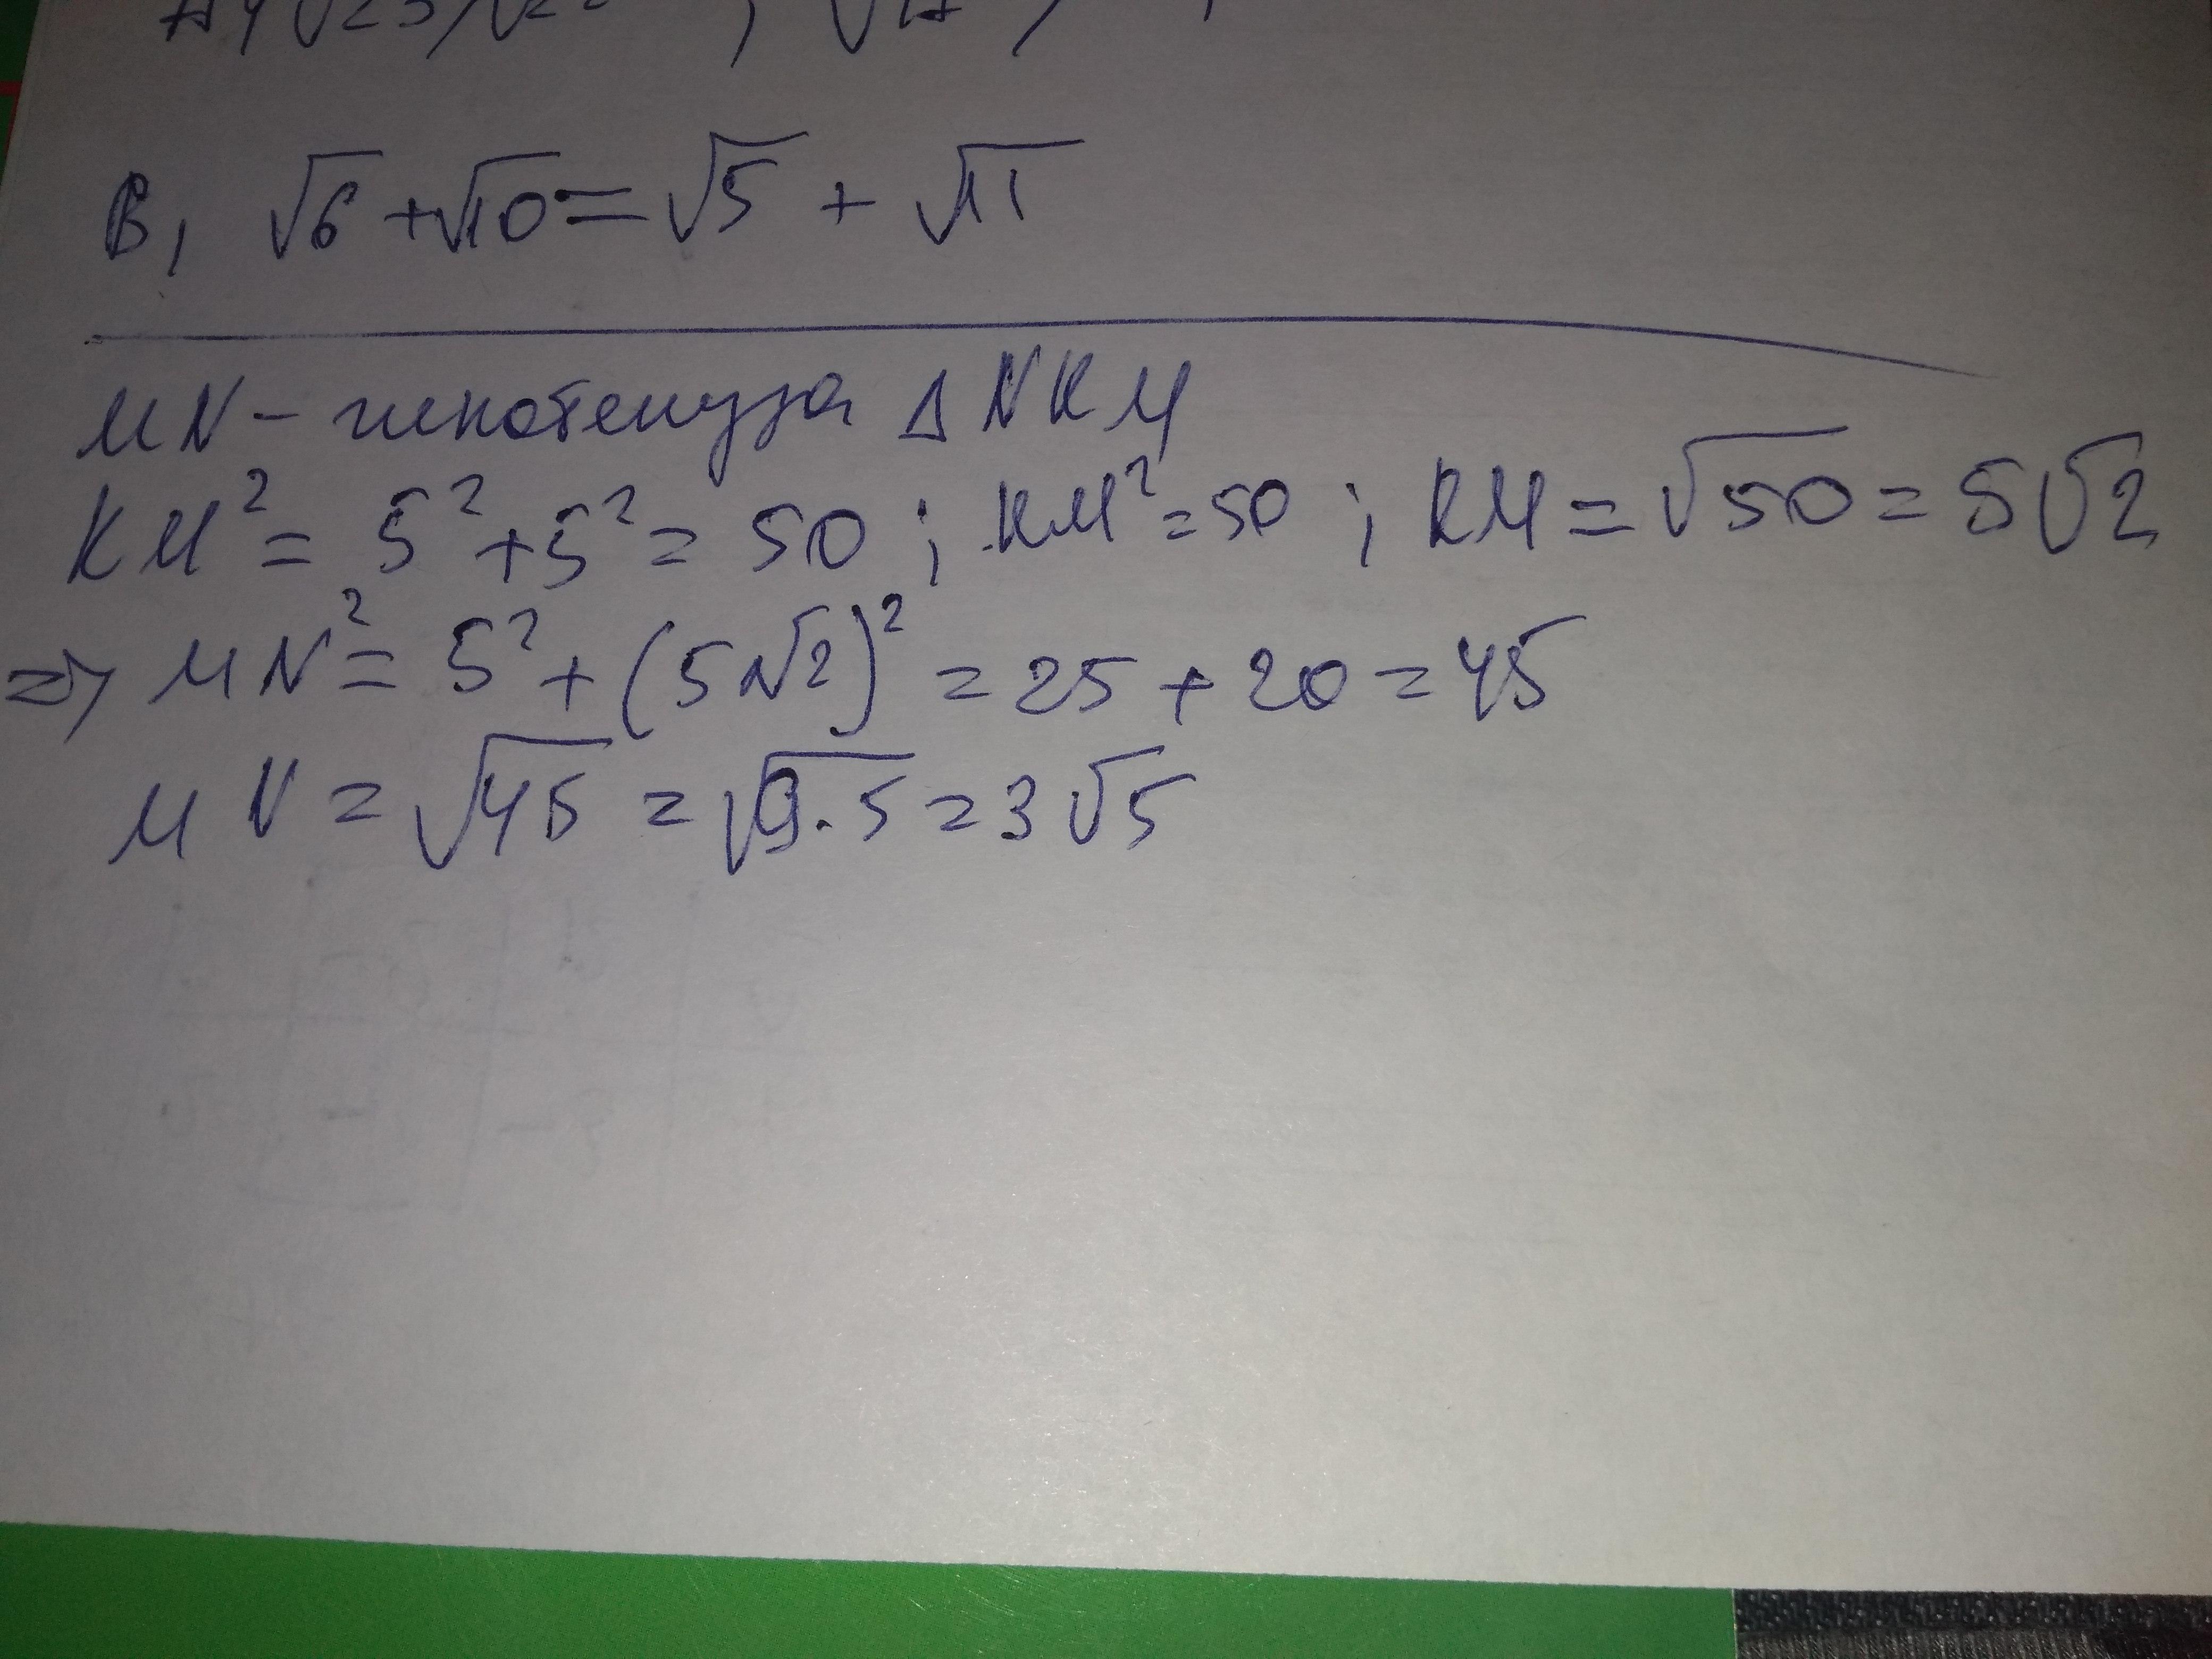 В, √6 + √10 = √5 + √11
MN - гипотенуза Δ NKM
KM² = 5² + 5² = 50 ; KM² = 50 ; KM = √50 = 5√2
=> MN² = 5² + (5√2)² = 25 + 20 = 45
MN = √45 = √9·5 = 3√5